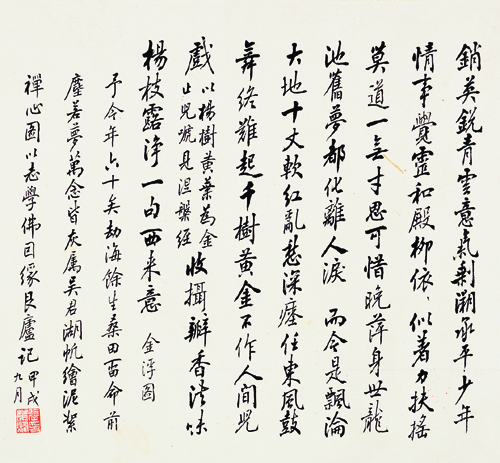 銷英銳青雲意氣剩溯承平少年
情事覺靈和殿柳依、似着力扶搖
莫道一無才思可惜晚萍身世龍
池舊夢都化離人淚 而今是飄淪
大地十丈軟紅亂愁深瘞住東風鼓
舞終難起千樹黃金不作人間兒
戲 以楊樹黃葉為金止兒嗁見涅槃經 收攝瓣香清味
楊枝露淨一句西來意 金浮圖
予今年六十矣劫海餘生桑田留命前
塵若夢萬念皆灰屬吳君湖帆繪泥絮
禪心圖以志學佛因緣艮廬記 甲戌九月